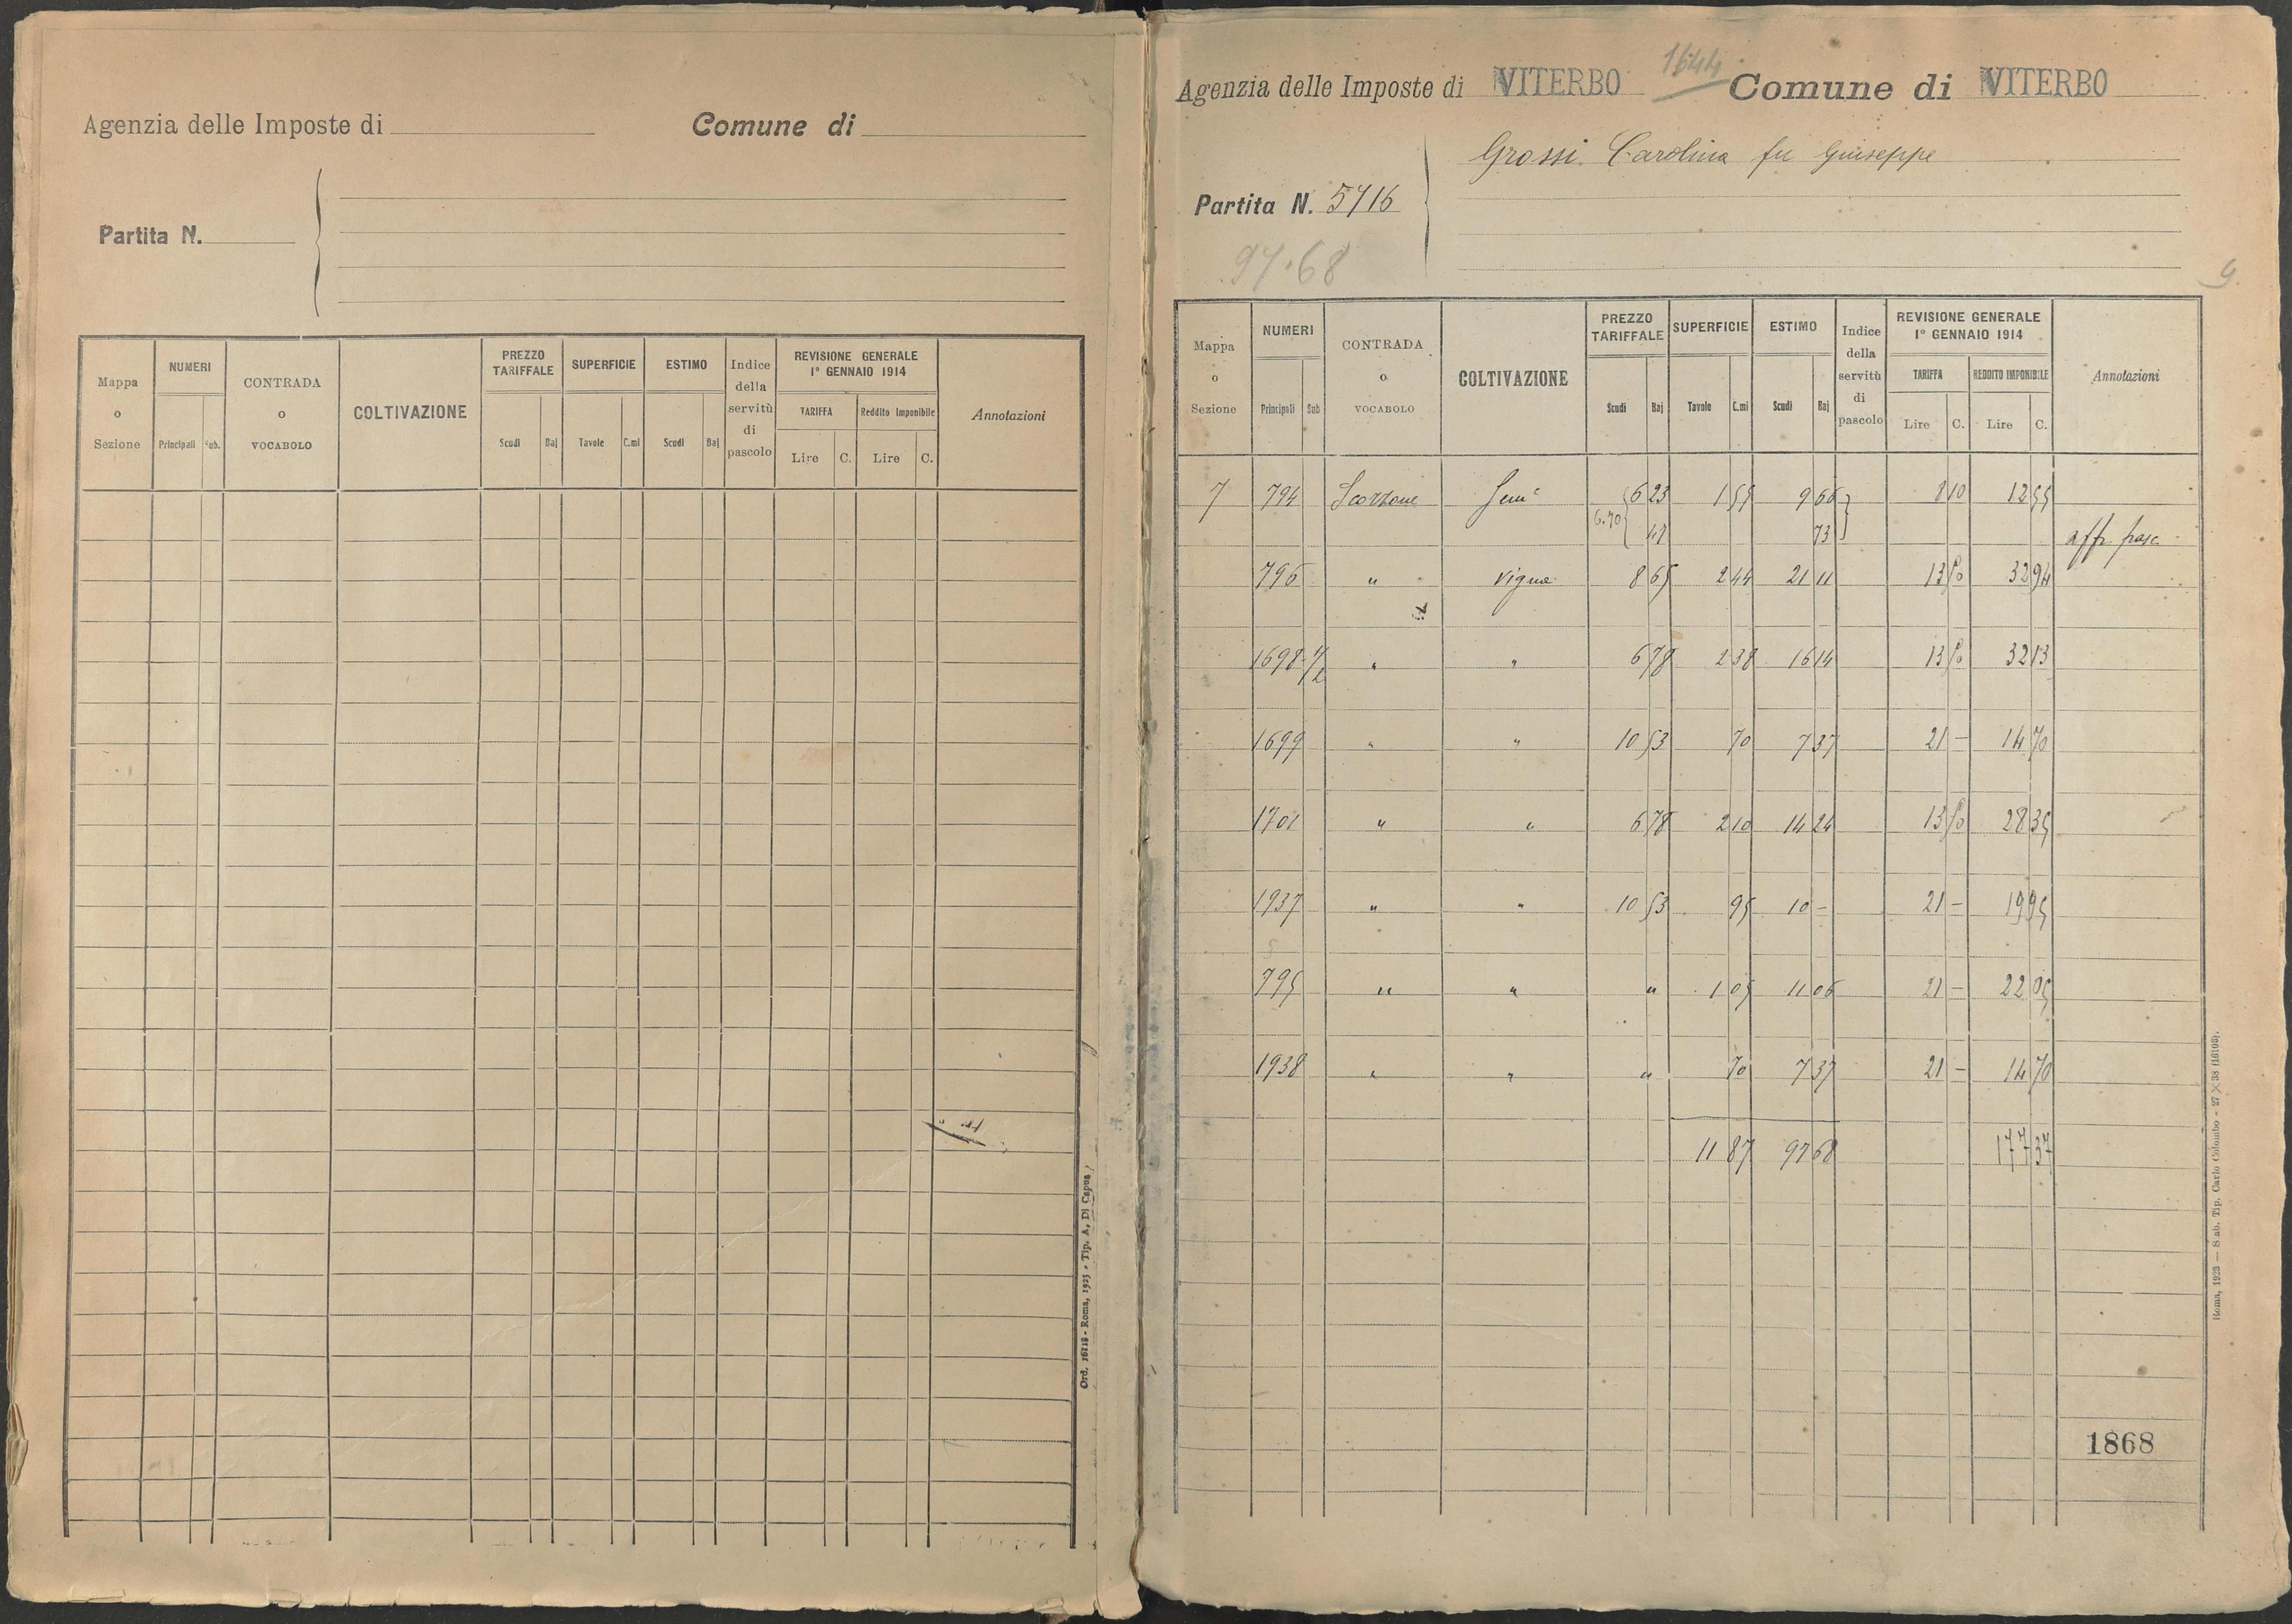 Agenzia delle Imposte di
Comune di
Partita N.
Mappa o Sezione
NUMERI
Principali
Sub.
CONTRADA o VOCABOLO
COLTIVAZIONE
PREZZO TARIFFALE
Scudi
Baj
SUPERFICIE
Tavole
C.mi
ESTIMO
Scudi
Baj
Indice della servitù di pascolo
REVISIONE GENERALE
1° GENNAIO 1914
TARIFFA
Reddito Imponibile
Lire
C.
Lire
C.
Annotazioni
Ord. 16118 - Roma, 1923 - Tip. A. Di Capua
1644
Agenzia delle Imposte di VITERBO Comune di VITERBO
Grossi Carolina fu Giuseppe
Partita N. 5716
97.68
9
Mappa o Sezione
NUMERI
Principali
Sub
CONTRADA o VOCABOLO
COLTIVAZIONE
PREZZO TARIFFALE
Scudi
Baj
SUPERFICIE
Tavole
C.mi
ESTIMO
Scudi
Baj
Indice della servitù di pascolo
REVISIONE GENERALE
1° GENNAIO 1914
TARIFFA
REDDITO IMPONIBILE
Lire
C.
Lire
C.
Annotazioni
7 794 Scorzone Semc 6 23 1 55 9 66 8 10 12 55
6.70 47 73 affr. pasc.
796 " vigna 8 65 2 44 21 11 13 50 32 94
1698 1/2 " " 6 78 2 38 16 14 13 50 32 13
1699 " " 10 53 70 7 37 21 - 14 70
1701 " " 6 78 2 10 14 24 13 50 28 35
1937 " " 10 53 95 10 - 21 - 19 95
795 " " " 1 05 11 06 21 - 22 05
1938 " " " 70 7 37 21 - 14 70
11 87 97 68 177 37
1868
Roma, 1923 — Stab. Tip. Carlo Colombo - 27 × 38 (16193).